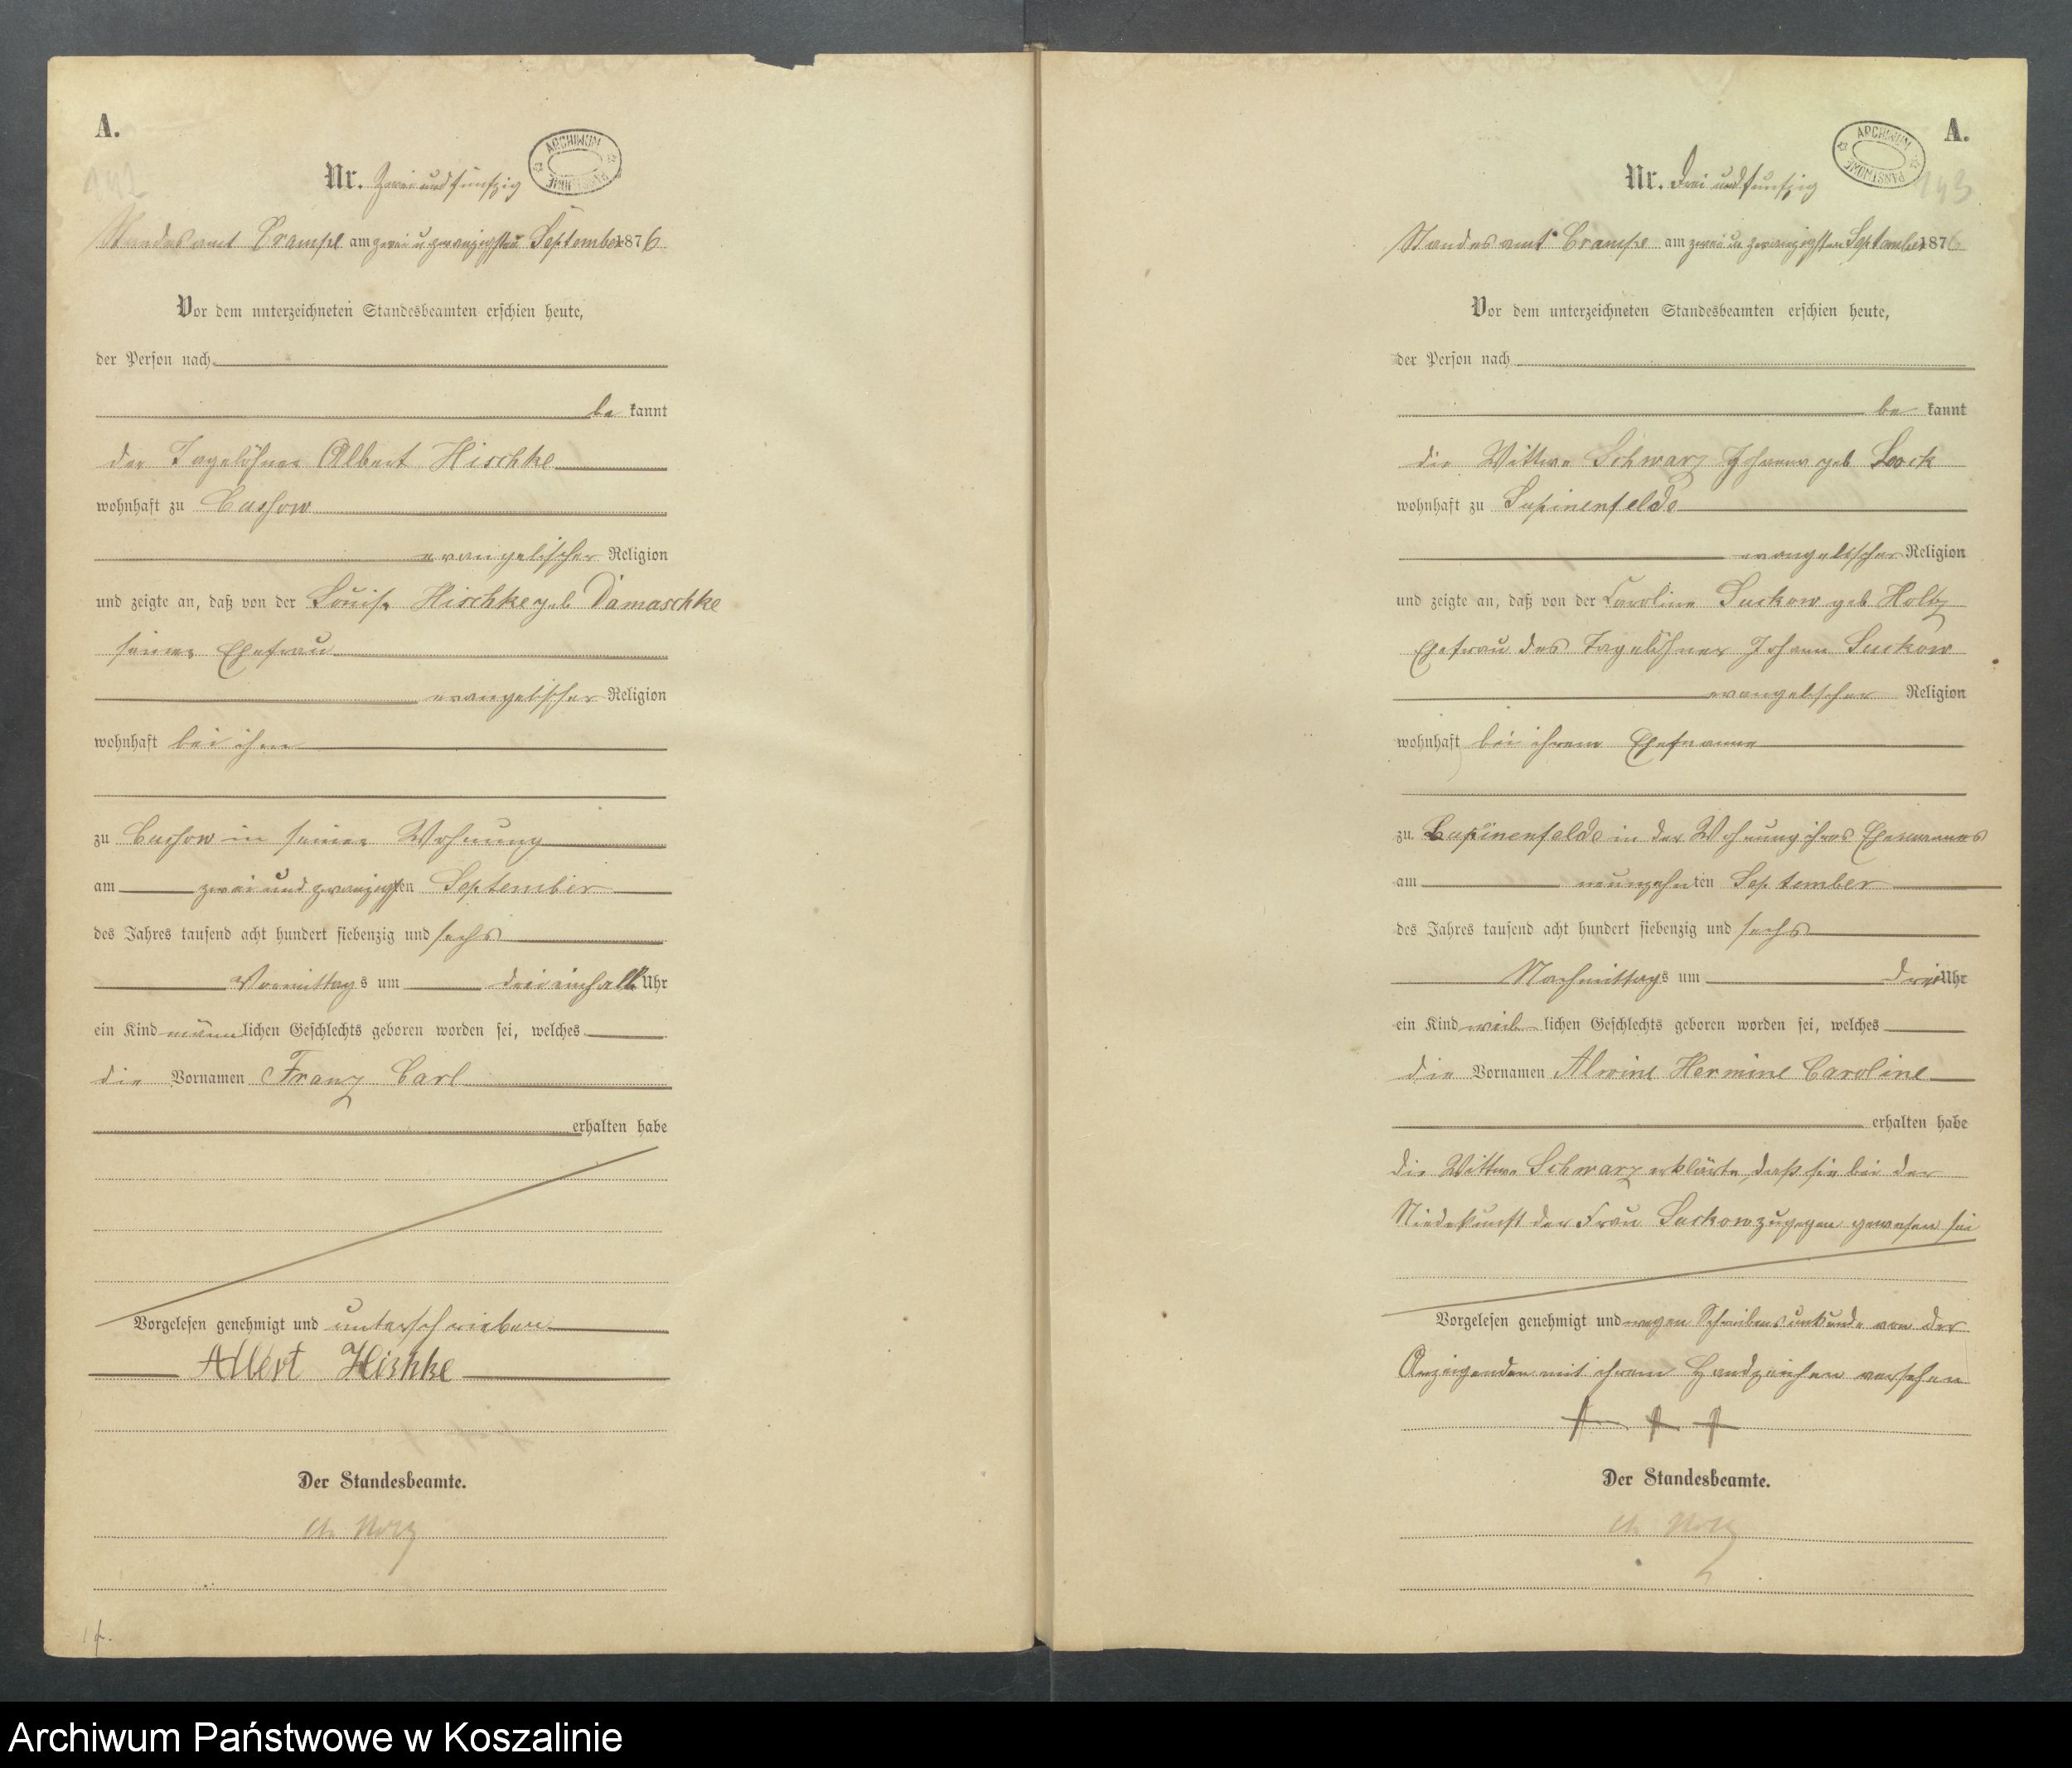 A.
142
Nr. Zwei und funfzig
ARCHIWUM PAŃSTWOWE
Standesamt Crampe am zwei u zwanzigsten September 1876
Vor dem unterzeichneten Standesbeamten erschien heute,
der Person nach
be kannt
der Tagelöhner Albert Hischke
wohnhaft zu Cussow
evangelischer Religion
und zeigte an, daß von der Louise Hischke geb Damaschke
seiner Ehefrau
evangelischer Religion
wohnhaft bei ihm
zu Cussow in seiner Wohnung
am zwei und zwanzigsten September
des Jahres tausend acht hundert siebenzig und sechs
Vormittags um drei einhalb Uhr
ein Kind männlichen Geschlechts geboren worden sei, welches
die Vornamen Franz Carl
erhalten habe
Vorgelesen genehmigt und unterschrieben
Albert Hishke
Der Standesbeamte.
A.
143
Nr. Drei und funfzig
ARCHIWUM PAŃSTWOWE
Standesamt Crampe am zwei u zwanzigsten September 1876
Vor dem unterzeichneten Standesbeamten erschien heute,
der Person nach
be kannt
die Wittwe Schwarz geb
wohnhaft zu Lupinenfelde
evangelischer Religion
und zeigte an, daß von der Caroline Suckow geb Holtz
Ehefrau des Tagelöhner Johann Suckow
evangelischer Religion
wohnhaft bei ihrem Ehemanne
zu Lupinenfelde in der Wohnung ihres Ehemannes
am neunzehnten September
des Jahres tausend acht hundert siebenzig und sechs
Nachmittags um drei Uhr
ein Kind weiblichen Geschlechts geboren worden sei, welches
die Vornamen Alwine Hermine Caroline
erhalten habe
die Wittwe Schwarz erklärte, daß sie bei der
Niedekunft der Frau Suckow zugegen gewesen sei
Vorgelesen genehmigt und wegen Schreibensunkunde von der
Anzeigenden mit ihrem Handzeichen versehen
+ + +
Der Standesbeamte.
Archiwum Państwowe w Koszalinie